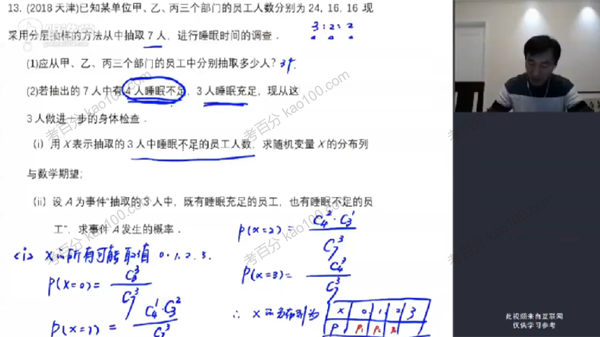 13. (2018 天津)已知某单位甲、乙、丙三个部门的员工人数分别为 24, 16, 16 现
3:2:2
采用分层抽样的方法从中抽取 7 人，进行睡眠时间的调查.
(1)应从甲、乙、丙三个部门的员工中分别抽取多少人?
(2)若抽出的 7 人中有 4 人睡眠不足，3 人睡眠充足，现从这
3 人做进一步的身体检查.
(i) 用 X 表示抽取的 3 人中睡眠不足的员工人数，求随机变量 X 的分布列
与数学期望;
(ii) 设 A 为事件"抽取的 3 人中，既有睡眠充足的员工，也有睡眠不足的员
工"，求事件 A 发生的概率.
(i) X 的所有可能取值 0.1.2.3.
P(X=0)= C₃³/C₇³
P(X=1)= C₄¹·C₃²/C₇³
P(X=2)= C₄²·C₃¹/C₇³
P(X=3)= C₄³/C₇³
∴ X 的分布列为
X 0 1 2 3
P P₁ P₁ P₂
考百分 kao100.com
考百分 kao100.com
考百分 kao100.com
考百分 kao100.com
此视频来自互联网
仅供学习参考